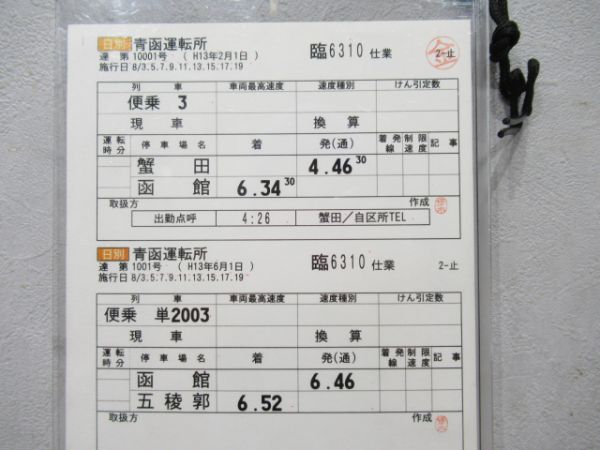 日別 青函運転所 臨6310 仕業 2-止
達 第 10001号 ( H13年2月1日 )
施行日 8/3.5.7.9.11.13.15.17.19
列 車 車両最高速度 速度種別 けん引定数
便乗 3
現 車 換 算
運転時分 停車場名 着 発(通) 着発線 制限速度 記事
蟹 田 4.46 30
函 館 6.34 30
取扱方 作成
出勤点呼 4:26 蟹田/自区所TEL
日別 青函運転所 臨6310 仕業 2-止
達 第 1001号 ( H13年6月1日 )
施行日 8/3.5.7.9.11.13.15.17.19
列 車 車両最高速度 速度種別 けん引定数
便乗 単2003
現 車 換 算
運転時分 停車場名 着 発(通) 着発線 制限速度 記事
函 館 6.46
五稜郭 6.52
取扱方 作成